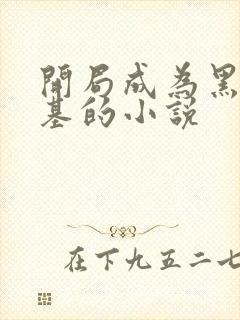 開局成為黑
基的小說
在下九五二七